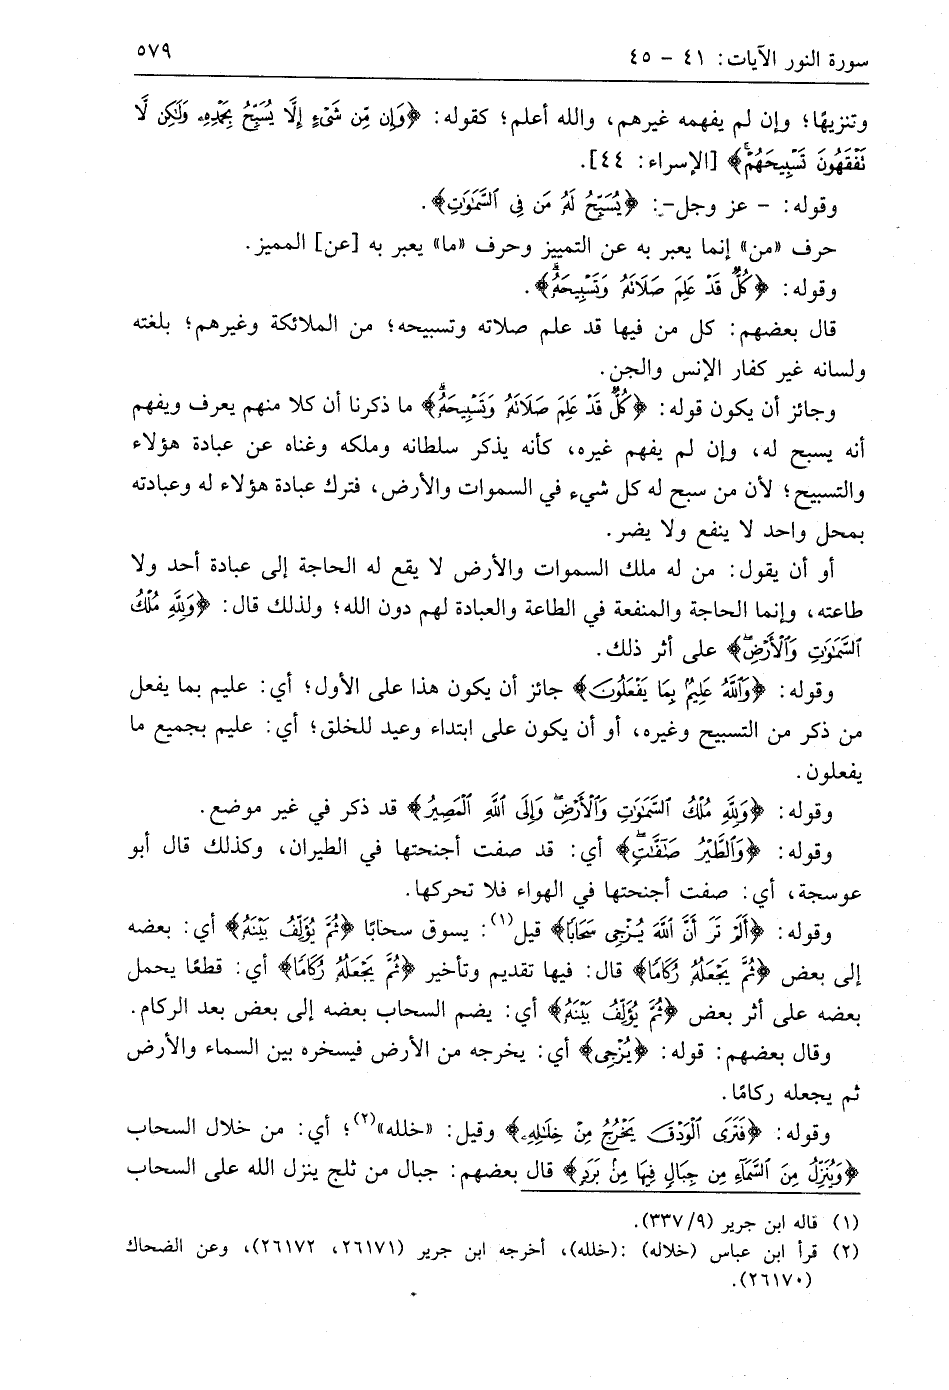 سورة النور الآيات: ٤١ - ٤٥
٥٧٩
وتنزيهًا؛ وإن لم يفهمه غيرهم، والله أعلم؛ كقوله: ﴿وَإِن مِّن شَىْءٍ إِلَّا يُسَبِّحُ بِحَمْدِهِۦ وَلَٰكِن لَّا
تَفْقَهُونَ تَسْبِيحَهُمْ﴾ [الإسراء: ٤٤].
وقوله: - عز وجل-: ﴿يُسَبِّحُ لَهُۥ مَن فِى ٱلسَّمَٰوَٰتِ﴾.
حرف «من» إنما يعبر به عن التمييز وحرف «ما» يعبر به [عن] المميز.
وقوله: ﴿كُلٌّ قَدْ عَلِمَ صَلَاتَهُۥ وَتَسْبِيحَهُۥ﴾.
قال بعضهم: كل من فيها قد علم صلاته وتسبيحه؛ من الملائكة وغيرهم؛ بلغته
ولسانه غير كفار الإنس والجن.
وجائز أن يكون قوله: ﴿كُلٌّ قَدْ عَلِمَ صَلَاتَهُۥ وَتَسْبِيحَهُۥ﴾ ما ذكرنا أن كلا منهم يعرف ويفهم
أنه يسبح له، وإن لم يفهم غيره، كأنه يذكر سلطانه وملكه وغناه عن عبادة هؤلاء
والتسبيح؛ لأن من سبح له كل شيء في السموات والأرض، فترك عبادة هؤلاء له وعبادته
بمحل واحد لا ينفع ولا يضر.
أو أن يقول: من له ملك السموات والأرض لا يقع له الحاجة إلى عبادة أحد ولا
طاعته، وإنما الحاجة والمنفعة في الطاعة والعبادة لهم دون الله؛ ولذلك قال: ﴿وَلِلَّهِ مُلْكُ
ٱلسَّمَٰوَٰتِ وَٱلْأَرْضِ﴾ على أثر ذلك.
وقوله: ﴿وَٱللَّهُ عَلِيمٌۢ بِمَا يَفْعَلُونَ﴾ جائز أن يكون هذا على الأول؛ أي: عليم بما يفعل
من ذكر من التسبيح وغيره، أو أن يكون على ابتداء وعيد للخلق؛ أي: عليم بجميع ما
يفعلون.
وقوله: ﴿وَلِلَّهِ مُلْكُ ٱلسَّمَٰوَٰتِ وَٱلْأَرْضِ وَإِلَى ٱللَّهِ ٱلْمَصِيرُ﴾ قد ذكر في غير موضع.
وقوله: ﴿وَٱلطَّيْرُ صَٰٓفَّٰتٍ﴾ أي: قد صفت أجنحتها في الطيران، وكذلك قال أبو
عوسجة، أي: صفت أجنحتها في الهواء فلا تحركها.
وقوله: ﴿أَلَمْ تَرَ أَنَّ ٱللَّهَ يُزْجِى سَحَابًا﴾ قيل(١): يسوق سحابًا ﴿ثُمَّ يُؤَلِّفُ بَيْنَهُۥ﴾ أي: بعضه
إلى بعض ﴿ثُمَّ يَجْعَلُهُۥ رُكَامًا﴾ قال: فيها تقديم وتأخير ﴿ثُمَّ يَجْعَلُهُۥ رُكَامًا﴾ أي: قطعًا يحمل
بعضه على أثر بعض ﴿ثُمَّ يُؤَلِّفُ بَيْنَهُۥ﴾ أي: يضم السحاب بعضه إلى بعض بعد الركام.
وقال بعضهم: قوله: ﴿يُزْجِى﴾ أي: يخرجه من الأرض فيسخره بين السماء والأرض
ثم يجعله ركامًا.
وقوله: ﴿فَتَرَى ٱلْوَدْقَ يَخْرُجُ مِنْ خِلَٰلِهِۦ﴾ وقيل: «خلله»(٢)؛ أي: من خلال السحاب
﴿وَيُنَزِّلُ مِنَ ٱلسَّمَآءِ مِن جِبَالٍ فِيهَا مِنۢ بَرَدٍ﴾ قال بعضهم: جبال من ثلج ينزل الله على السحاب
(١) قاله ابن جرير (٩/ ٣٣٧).
(٢) قرأ ابن عباس (خلاله) :(خلله)، أخرجه ابن جرير (٢٦١٧١، ٢٦١٧٢)، وعن الضحاك
(٢٦١٧٠).